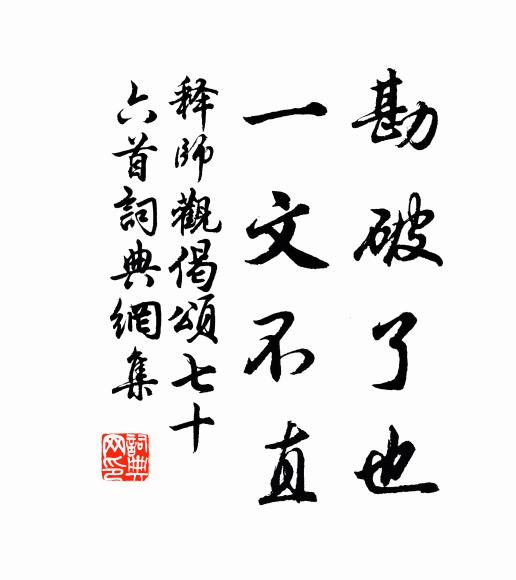 勘破了也
一文不直
释師觀偈頌七十
六首詞典網集
詞典
网印